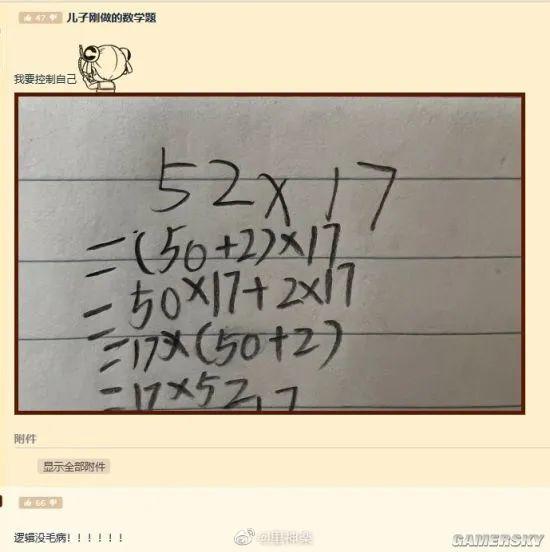 47
儿子刚做的数学题
我要控制自己
52×17
=(50+2)×17
=50×17+2×17
=17×(50+2)
=17×52
附件
显示全部附件
66
逻辑没毛病!!!!!!
GAMERSKY